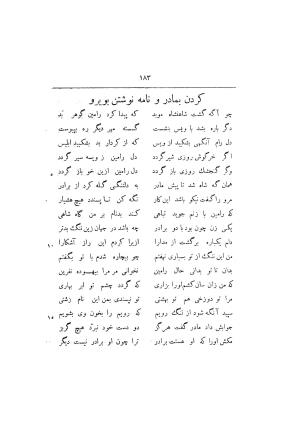 ۱۸۳
کردن بمادر و نامه نوشتن بویرو
چو آگه گشت شاهنشاه موبد که پیدا کرد رامین گوهر بد
دگر باره بشد با ویس بنشست گسسته مهر دیگر ره بپیوست
دل رام آنگهی بشکیبد از ویس که از کردار بد بشکیبد ابلیس
اگر خرگوش روزی شیر گردد دل رامین ز ویسه سیر گردد
وگر گنجشک روزی باز گردد دل رامین ازین خو باز گردد ۵
همان گه شاه شد تا پیش مادر به دلتنگی گله کرد از برادر
مرو را گفت نیکو باشد این کار نگه کن تا پسندد هیچ هشیار
که رامین با زنم جوید تباهی کند بدنام بر من گاه شاهی
یکی زن چون بود با دو برادر چه باشد در جهان زین ننگ بدتر
دلم یکباره برگشت از مدارا ازیرا کردم این راز آشکارا ۱۰
من این ننگ از تو بسیاری نهفتم چو بیچاره شدم با تو بگفتم
بدان تا تو بدانی حال رامین نخوانی مر مرا بیهوده نفرین
که من زان سان کشم او را بزاری که گردد چشم تو ابر بهاری
مرا تو دوزخی هم تو بهشتی تو نپسندی بمن این نام زشتی
سپید آنگه شود از ننگ رویم که رویم را بخون وی بشویم ۱۵
جوابش داد مادر گفت هرگز دو دست خود نبرد هیچ گربز
مکش او را که او هستت برادر ترا چون او برادر نیست دیگر